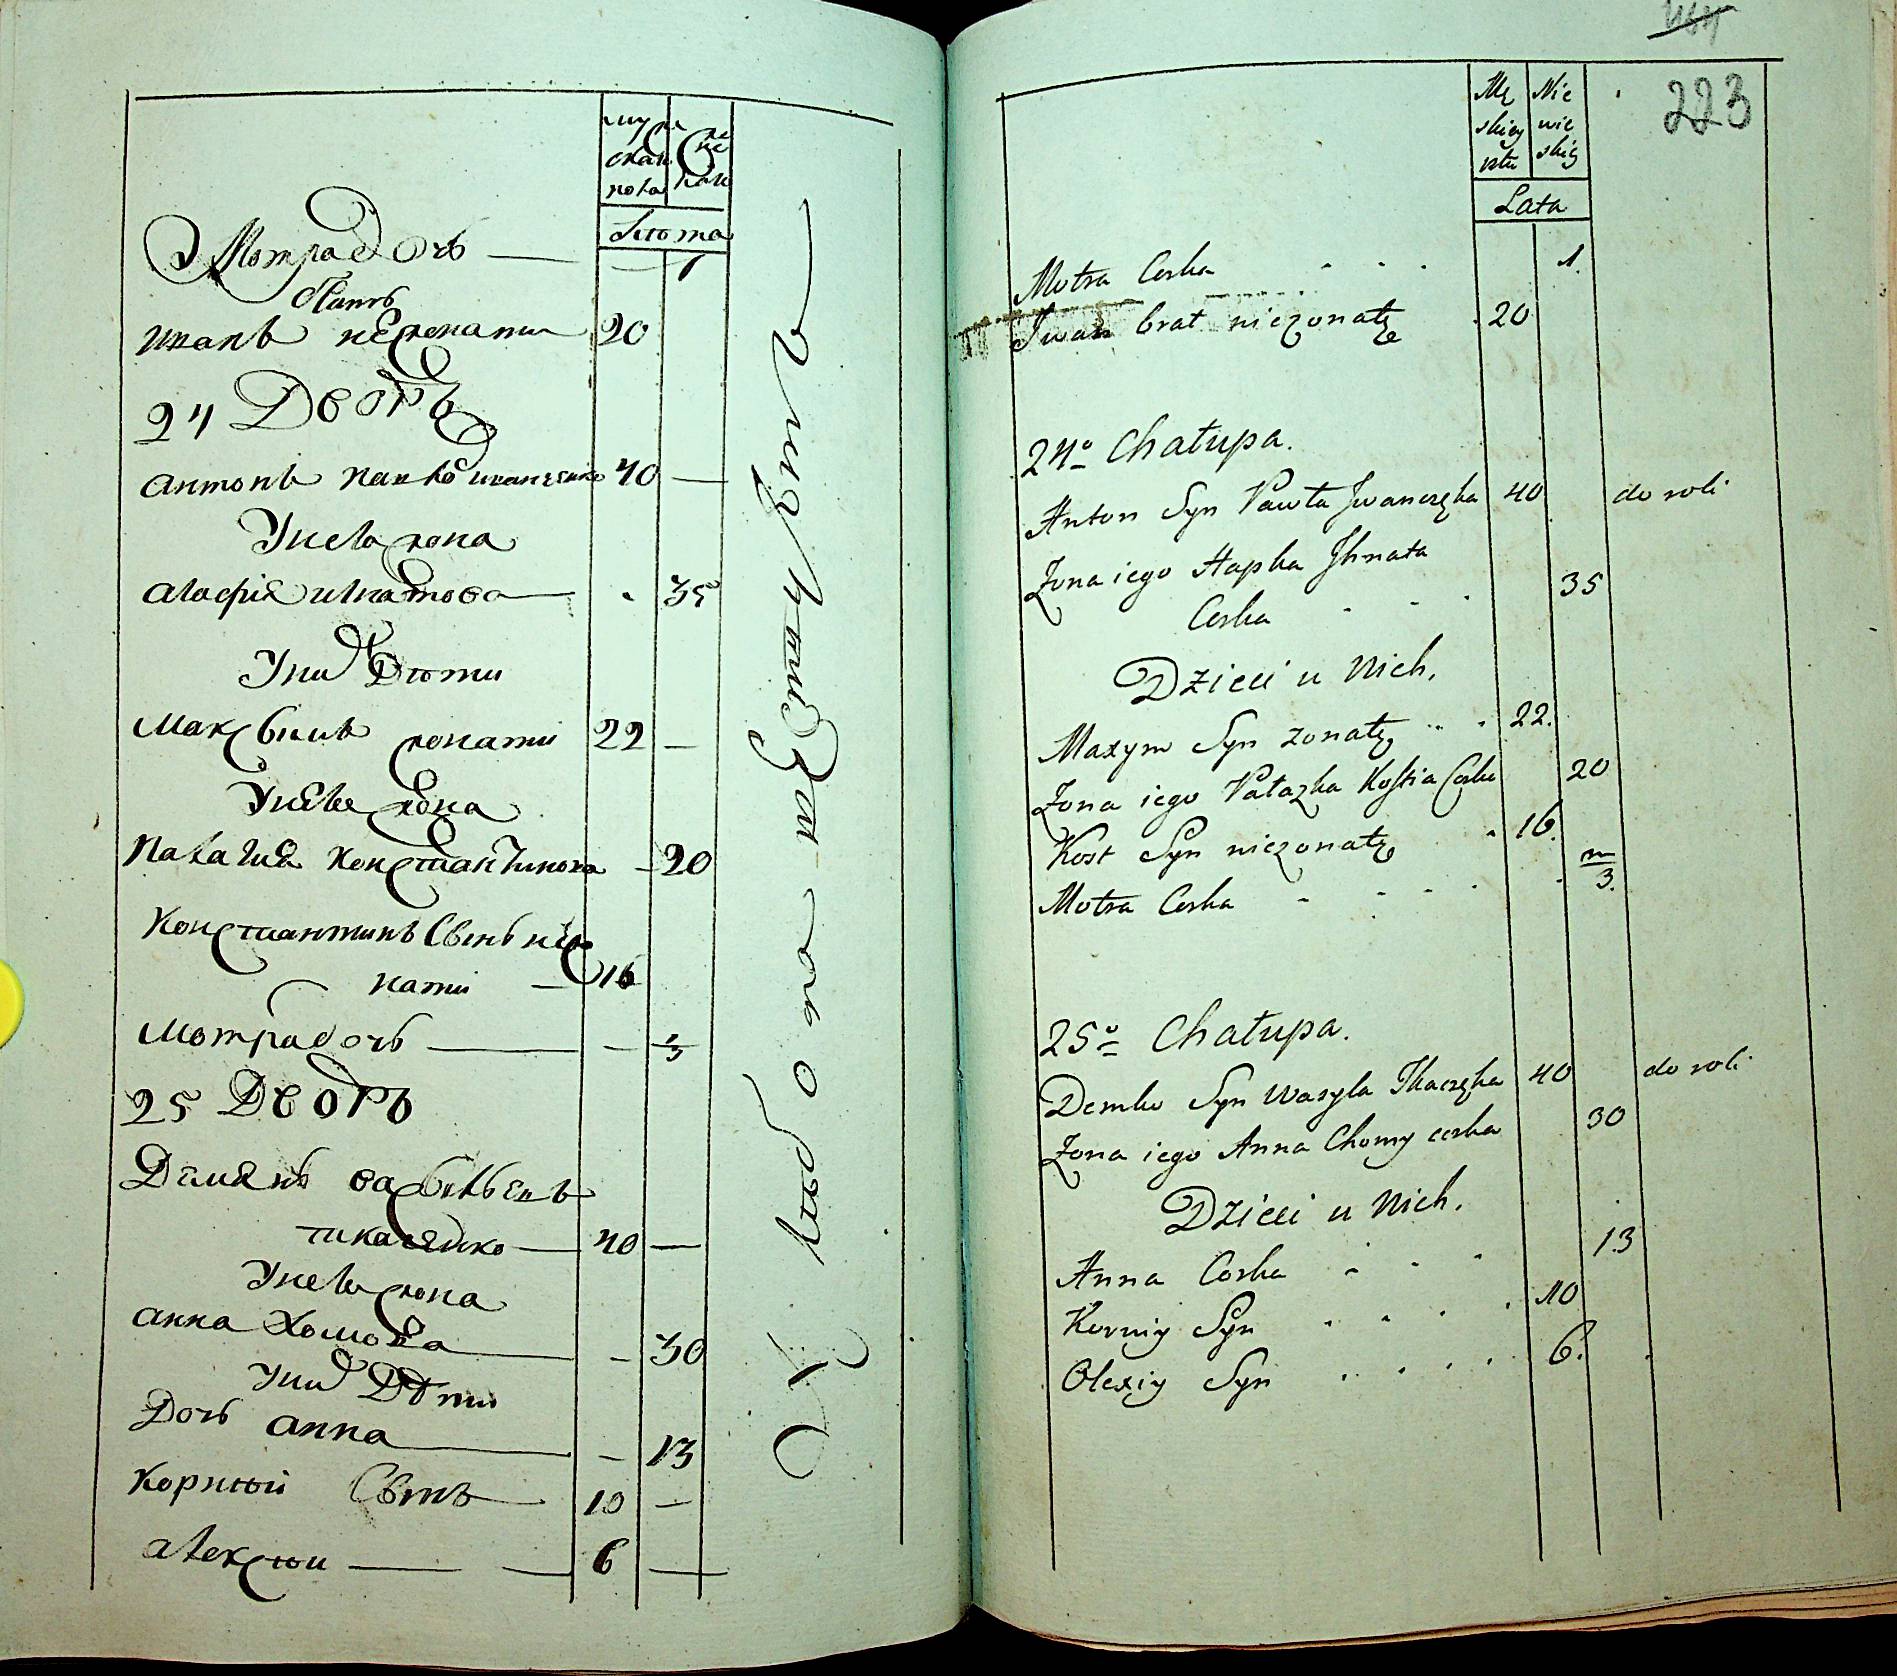 муж
скаго
пола
женс
ка
Лѣта
Мотра дочь — 1
братъ
иванъ нежонатий 20
24 Дворъ
антонъ павловъ иванченко 40 —
У него жона
агафия игнатова — 35
У них Дѣти
максымъ жонатий 22 —
У него жона
палагия константинова — 20
константинъ сынъ нежо
натий — 16
мотра дочь — 3
25 Дворъ
Демянъ васыльевъ
ткаченко — 40 —
У него жона
анна хомова — 30
У них Дѣти
Дочь анна — 13
корнѣй сынъ 10 —
алексѣй — 6 —
223
Mę
skiey
płci
Nie
wie
skiey
Lata
Motra Corka . . . 1.
Jwan brat niezonaty . 20
24o Chałupa.
Anton Syn Pawła Jwanczęka 40 do roli
Zona iego Hapka Jhnata
Corka . . . 35
Dzieci u Nich.
Maxym Syn zonaty . . . 22.
Zona iego Pałazka Kostia Corka 20
Kost Syn niezonaty . 16.
Motra Corka . . . . 3.
25o Chałupa.
Demko Syn Wasyla Tkaczęka 40 do roli
Zona iego Anna Chomy corka 30
Dzieci u Nich.
Anna Corka . . . 13
Korniy Syn . . . . 10
Olexiy Syn . . . . 6.